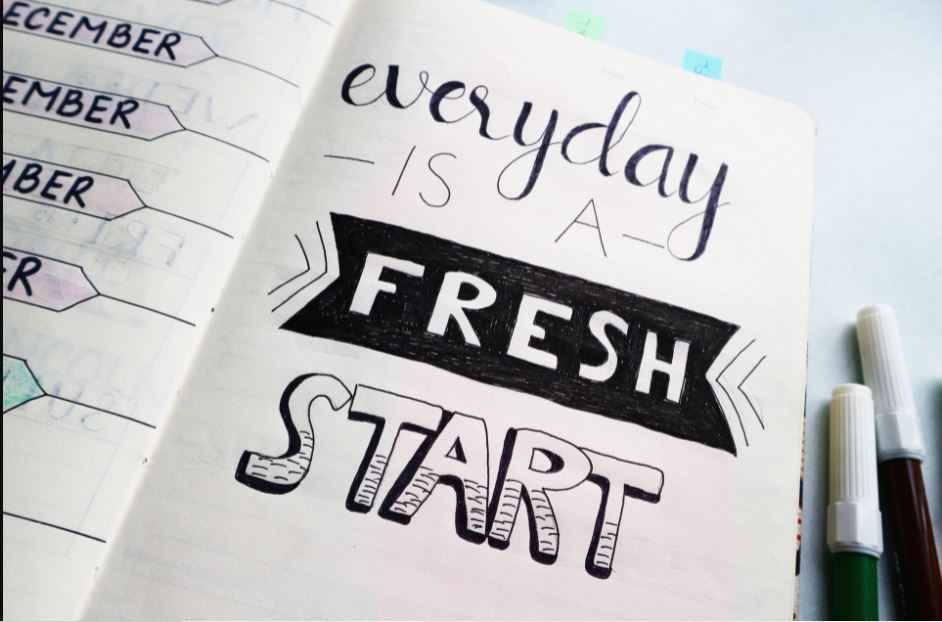 ECEMBER
EMBER
MBER
ER
everyday
- IS A -
FRESH
START